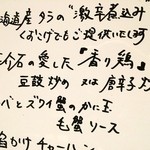 海道産タラの"激辛煮込み"
くずしげでもご提供いたします
石の愛した『香り鶏』
豆豉炒め 又は 唐辛子炒
バとズワイ蟹のかに玉
毛蟹ソース
かけチャーハン